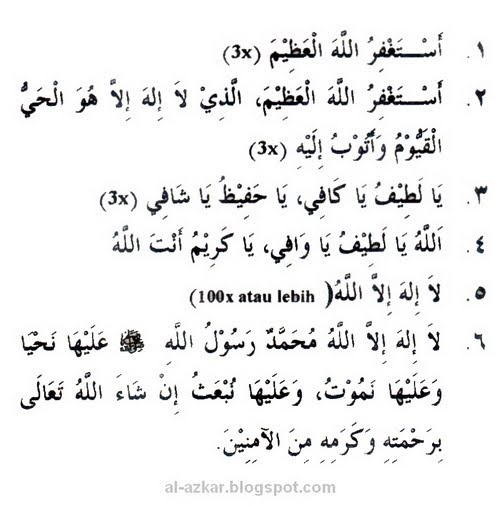 ١. أَسْـــتَغْفِرُ اللَّهَ الْعَظِيْمَ (3x)
٢. أَسْـــتَغْفِرُ اللَّهَ الْعَظِيْمَ، الَّذِيْ لاَ إِلهَ إِلاَّ هُوَ الْحَيُّ
الْقَيُّوْمُ وَأَتُوْبُ إِلَيْهِ (3x)
٣. يَا لَطِيْفُ يَا كَافِي، يَا حَفِيْظُ يَا شَافِي (3x)
٤. اَللَّهُ يَا لَطِيْفُ يَا وَافِي، يَا كَرِيْمُ أَنْتَ اللَّهُ
٥. لاَ إِلهَ إِلاَّ اللَّهُ (100x atau lebih)
٦. لاَ إِلهَ إِلاَّ اللَّهُ مُحَمَّدٌ رَسُوْلُ اللَّهِ ﷺ عَلَيْهَا نَحْيَا
وَعَلَيْهَا نَمُوْتُ، وَعَلَيْهَا نُبْعَثُ إِنْ شَاءَ اللَّهُ تَعَالَى
بِرَحْمَتِهِ وَكَرَمِهِ مِنَ الآمِنِيْنَ.
al-azkar.blogspot.com